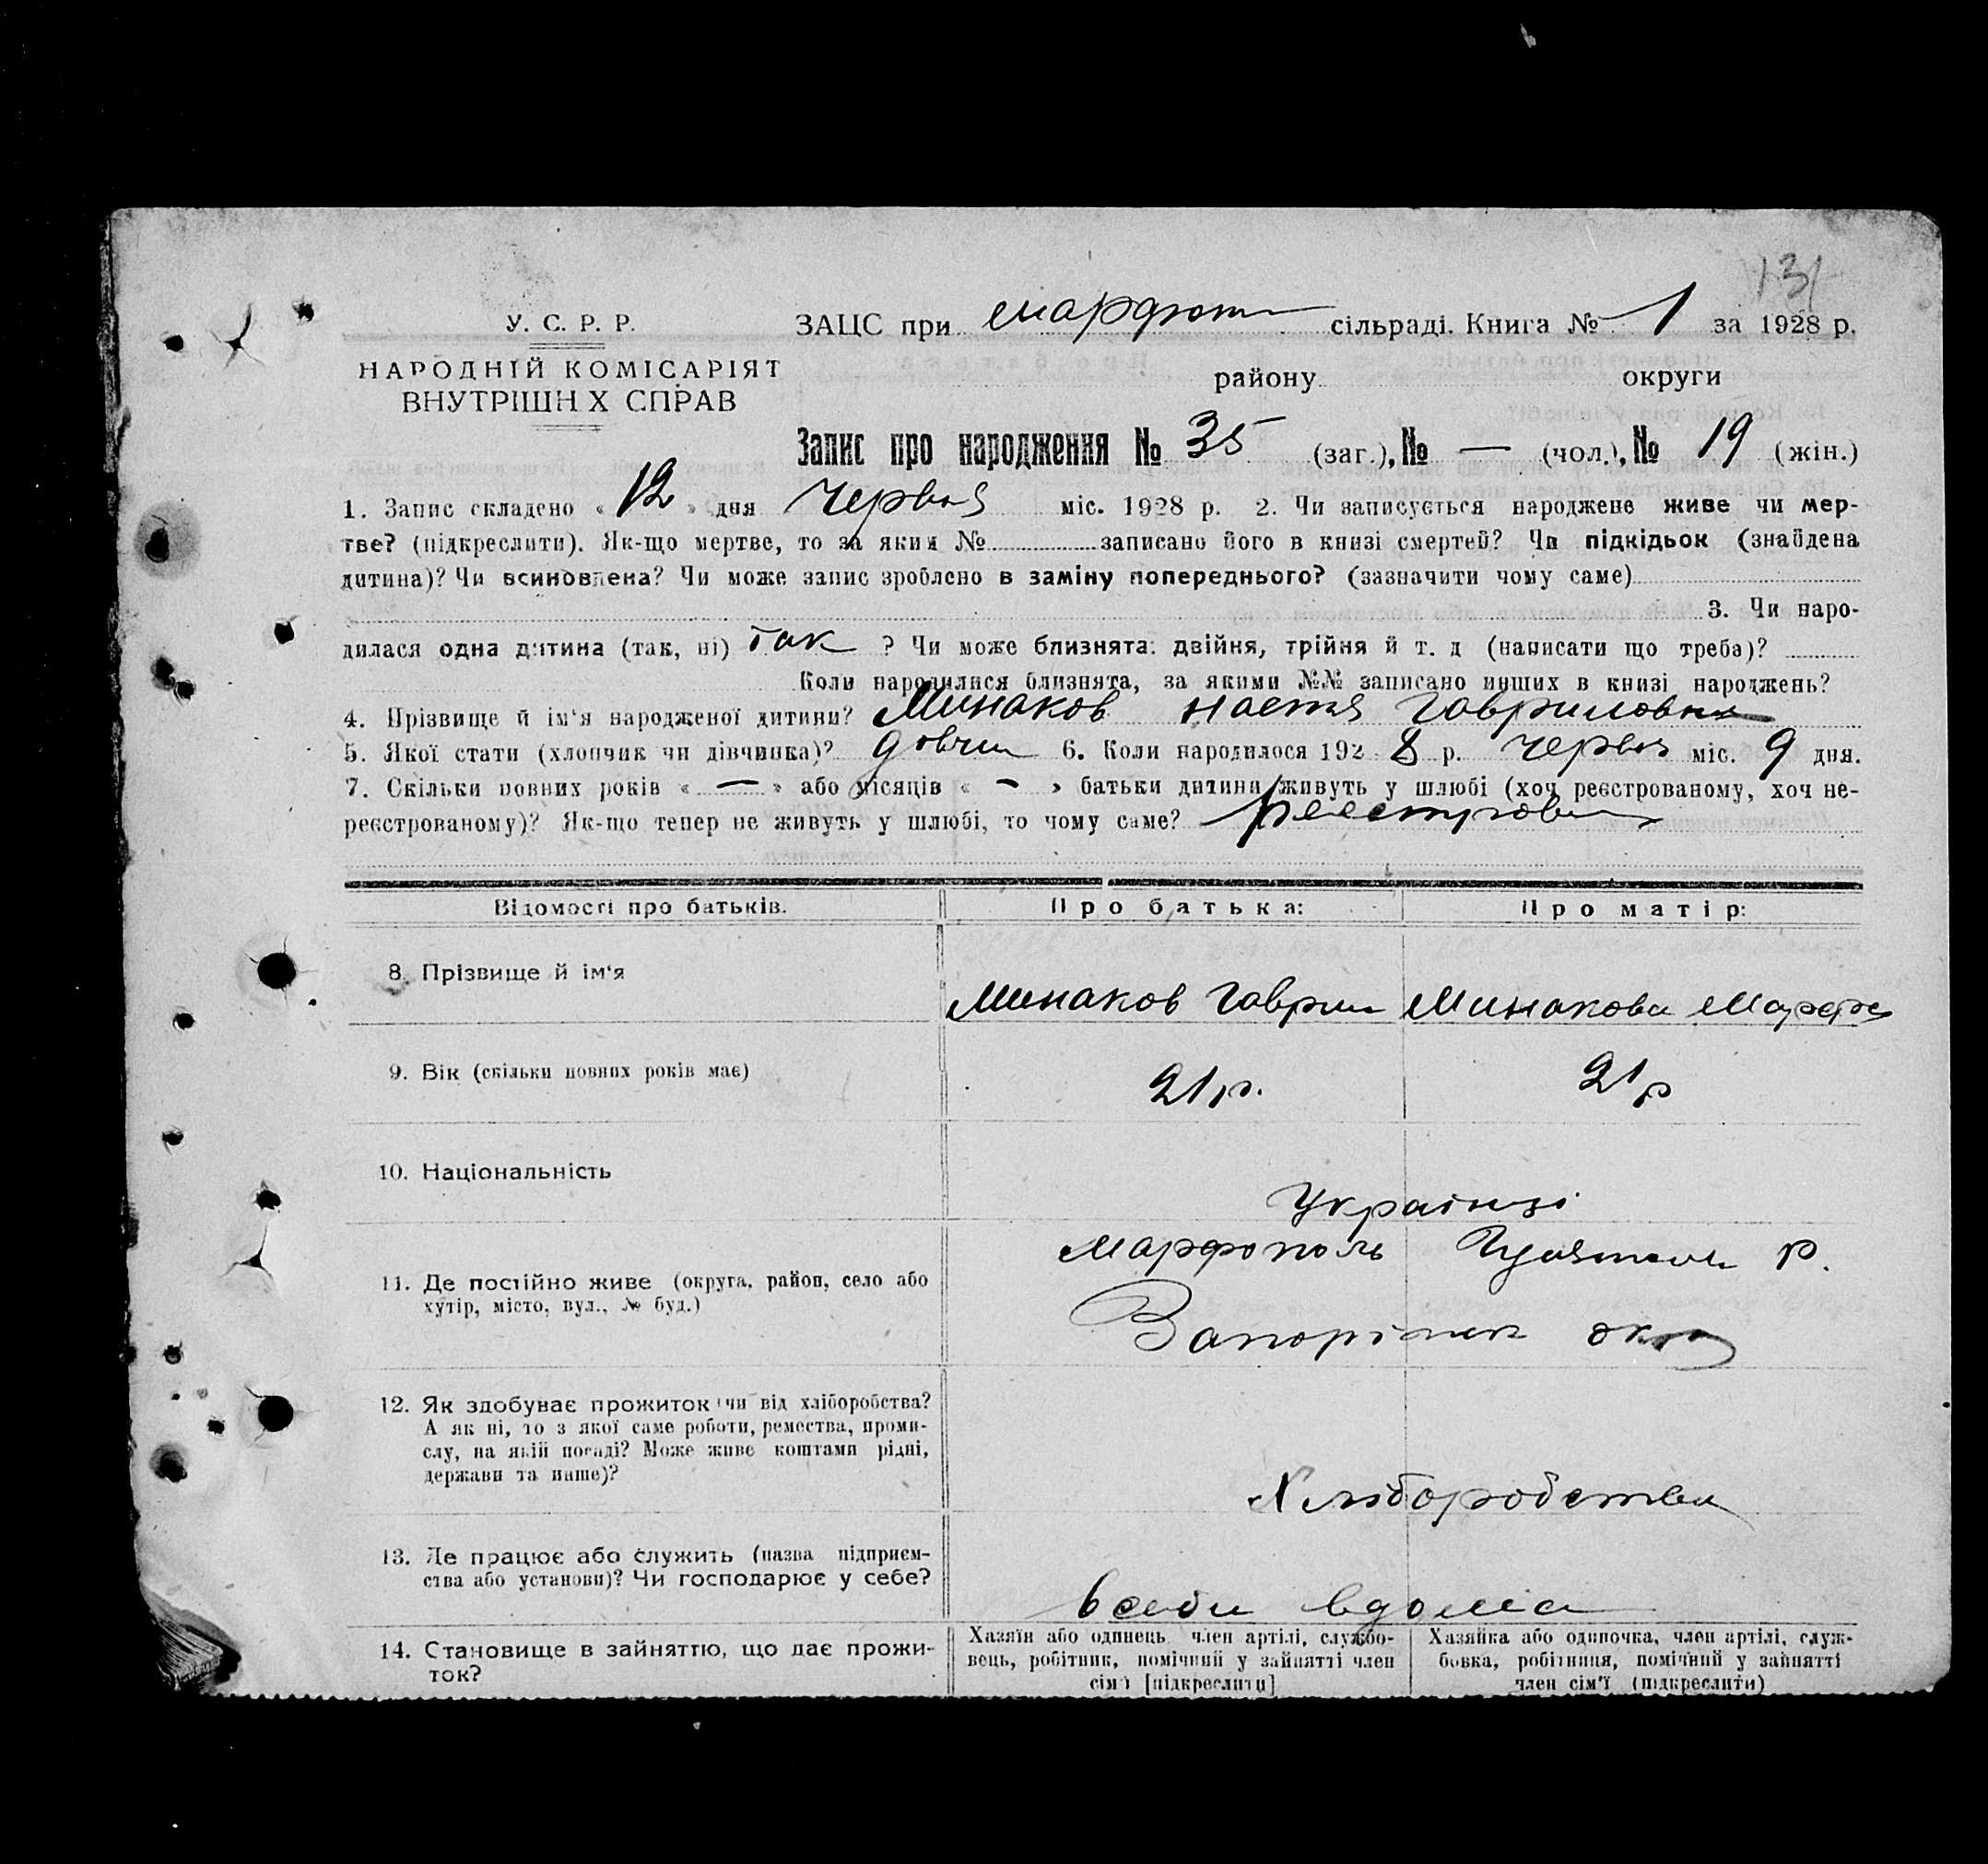 131
У. С. Р. Р.
НАРОДНІЙ КОМІСАРІЯТ
ВНУТРІШН Х СПРАВ
ЗАЦС при марфоп сільраді. Книга № 1 за 1928 р.
району округи
Запис про народження № 35 (заг.), № — (чол.), № 19 (жін.)
1. Запис складено « 12 » дня червня міс. 1928 р. 2. Чи записується народжене живе чи мер-
тве? (підкреслити). Як-що мертве, то за яким № записано його в книзі смертей? Чи підкідьок (знайдена
дитина)? Чи всиновлена? Чи може запис зроблено в заміну попереднього? (зазначити чому саме)
3. Чи наро-
дилася одна дитина (так, ні) так ? Чи може близнята: двійня, трійня й т. д (написати що треба)?
Коли народилися близнята, за якими №№ записано инших в книзі народжень?
4. Прізвище й ім'я народженої дитини? Минаков Настя Гавриловна
5. Якої стати (хлопчик чи дівчинка)? 6. Коли народилося 192 8 р. червня міс. 9 дня.
7. Скільки повних років « — » або місяців « — » батьки дитини живуть у шлюбі (хоч реєстрованому, хоч не-
реєстрованому)? Як-що тепер не живуть у шлюбі, то чому саме?
Відомості про батьків. Про батька: Про матір:
8. Прізвище й ім'я Минаков Гаврил Минакова Марфа
9. Вік (скільки повних років має) 21 р. 21 р
10. Національність Українці
11. Де постійно живе (округа, район, село або
хутір, місто, вул., № буд.)
Марфополь Гуляпол р.
Запоріжж окр
12. Як здобуває прожиток (чи від хліборобства?
А як ні, то з якої саме роботи, ремества, проми-
слу, на якій посаді? Може живе коштами рідні,
держави та инше)?
Хліборобства
13. Де працює або служить (назва підприєм-
ства або установи)? Чи господарює у себе?
всеби вдома
14. Становище в зайняттю, що дає прожи-
ток?
Хазяїн або одинець член артілі, службо-
вець, робітник, помічний у зайнятті член
сім'ї [підкреслити]
Хазяйка або одиночка, член артілі, служ-
бовка, робітниця, помічний у зайнятті
член сім'ї (підкреслити)